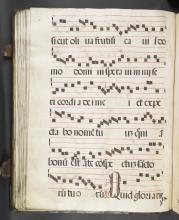 sicut oli ua fructifi ca in do
mo domi ni spera ui in mise
ri cordi a de i me i et expe
cta bo nomen tu um qm
bonū est ante cōspe ctū scto
rū tuo rū Quid gloriaris